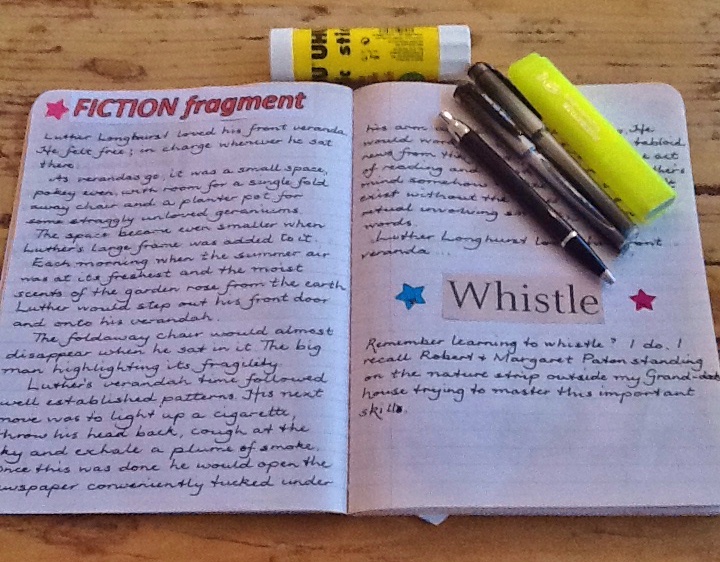 UHU
stic
FICTION fragment
Luther Longhurst loved his front veranda.
He felt free; in charge whenever he sat
there.
As verandas go, it was a small space,
pokey even, with room for a single fold
away chair and a planter pot for
some straggly unloved geraniums.
The space became even smaller when
Luther's large frame was added to it.
Each morning when the summer air
was at its freshest and the moist
scents of the garden rose from the earth
Luther would step out his front door
and onto his verandah.
The foldaway chair would almost
disappear when he sat in it. The big
man highlighting its fragility.
Luther's verandah time followed
well established patterns. His next
move was to light up a cigarette,
throw his head back, cough at the
sky and exhale a plume of smoke.
Once this was done he would open the
newspaper conveniently tucked under
his arm He
would tabloid
news from the act
of reading and
mind somehow
exist without the
ritual involving
words.
Luther Longhurst front
veranda...
Whistle
Remember learning to whistle? I do. I
recall Robert & Margaret Paton standing
on the nature strip outside my Grand-dad
house trying to master this important
skill.